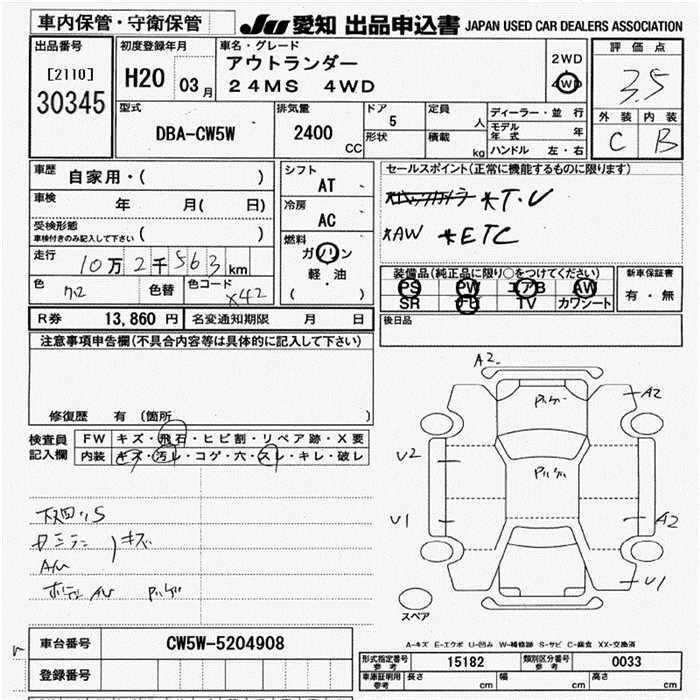 車内保管・守衛保管
JU 愛知 出品申込書 JAPAN USED CAR DEALERS ASSOCIATION
出品番号
[2110]
30345
初度登録年月
H20 03月
車名・グレード
アウトランダー
24MS 4WD
2WD
4WD
評価点
3.5
外装 内装
C B
型式
DBA-CW5W
排気量
2400 CC
ドア
5
形状
定員 人
積載 kg
ディーラー・並行
モデル年式 年
ハンドル 左・右
車歴 自家用・( )
車検 年 月( 日)
受検形態
車検付きのみ記入して下さい ( )
走行 10万2千563km
色 色替 色コード X42
シフト
AT
冷房
AC
燃料
ガソリン
軽・油
( )
セールスポイント(正常に機能するものに限ります)
*T.V
*AW *ETC
装備品(純正品に限り○をつけてください)
PS PW エアB AW
SR TV カワシート
新車保証書
有・無
R券 13,860円 名変通知期限 月 日
後日品
注意事項申告欄(不具合内容等は具体的に記入して下さい)
修復歴 有(箇所 )
検査員記入欄
FW キズ・飛石・ヒビ割・リペア跡・X要
内装 キズ・汚レ・コゲ・穴・スレ・キレ・破レ
キズ
AW
A2
A2
U2
U1
A2
U1
スペア
A-キズ E-エクボ U-凹み W-補修跡 S-サビ C-腐食 XX-交換済
車台番号 CW5W-5204908
登録番号
形式指定番号参考 15182 類別区分番号参考 0033
車庫証明用参考 長さ cm 幅 cm 高さ cm